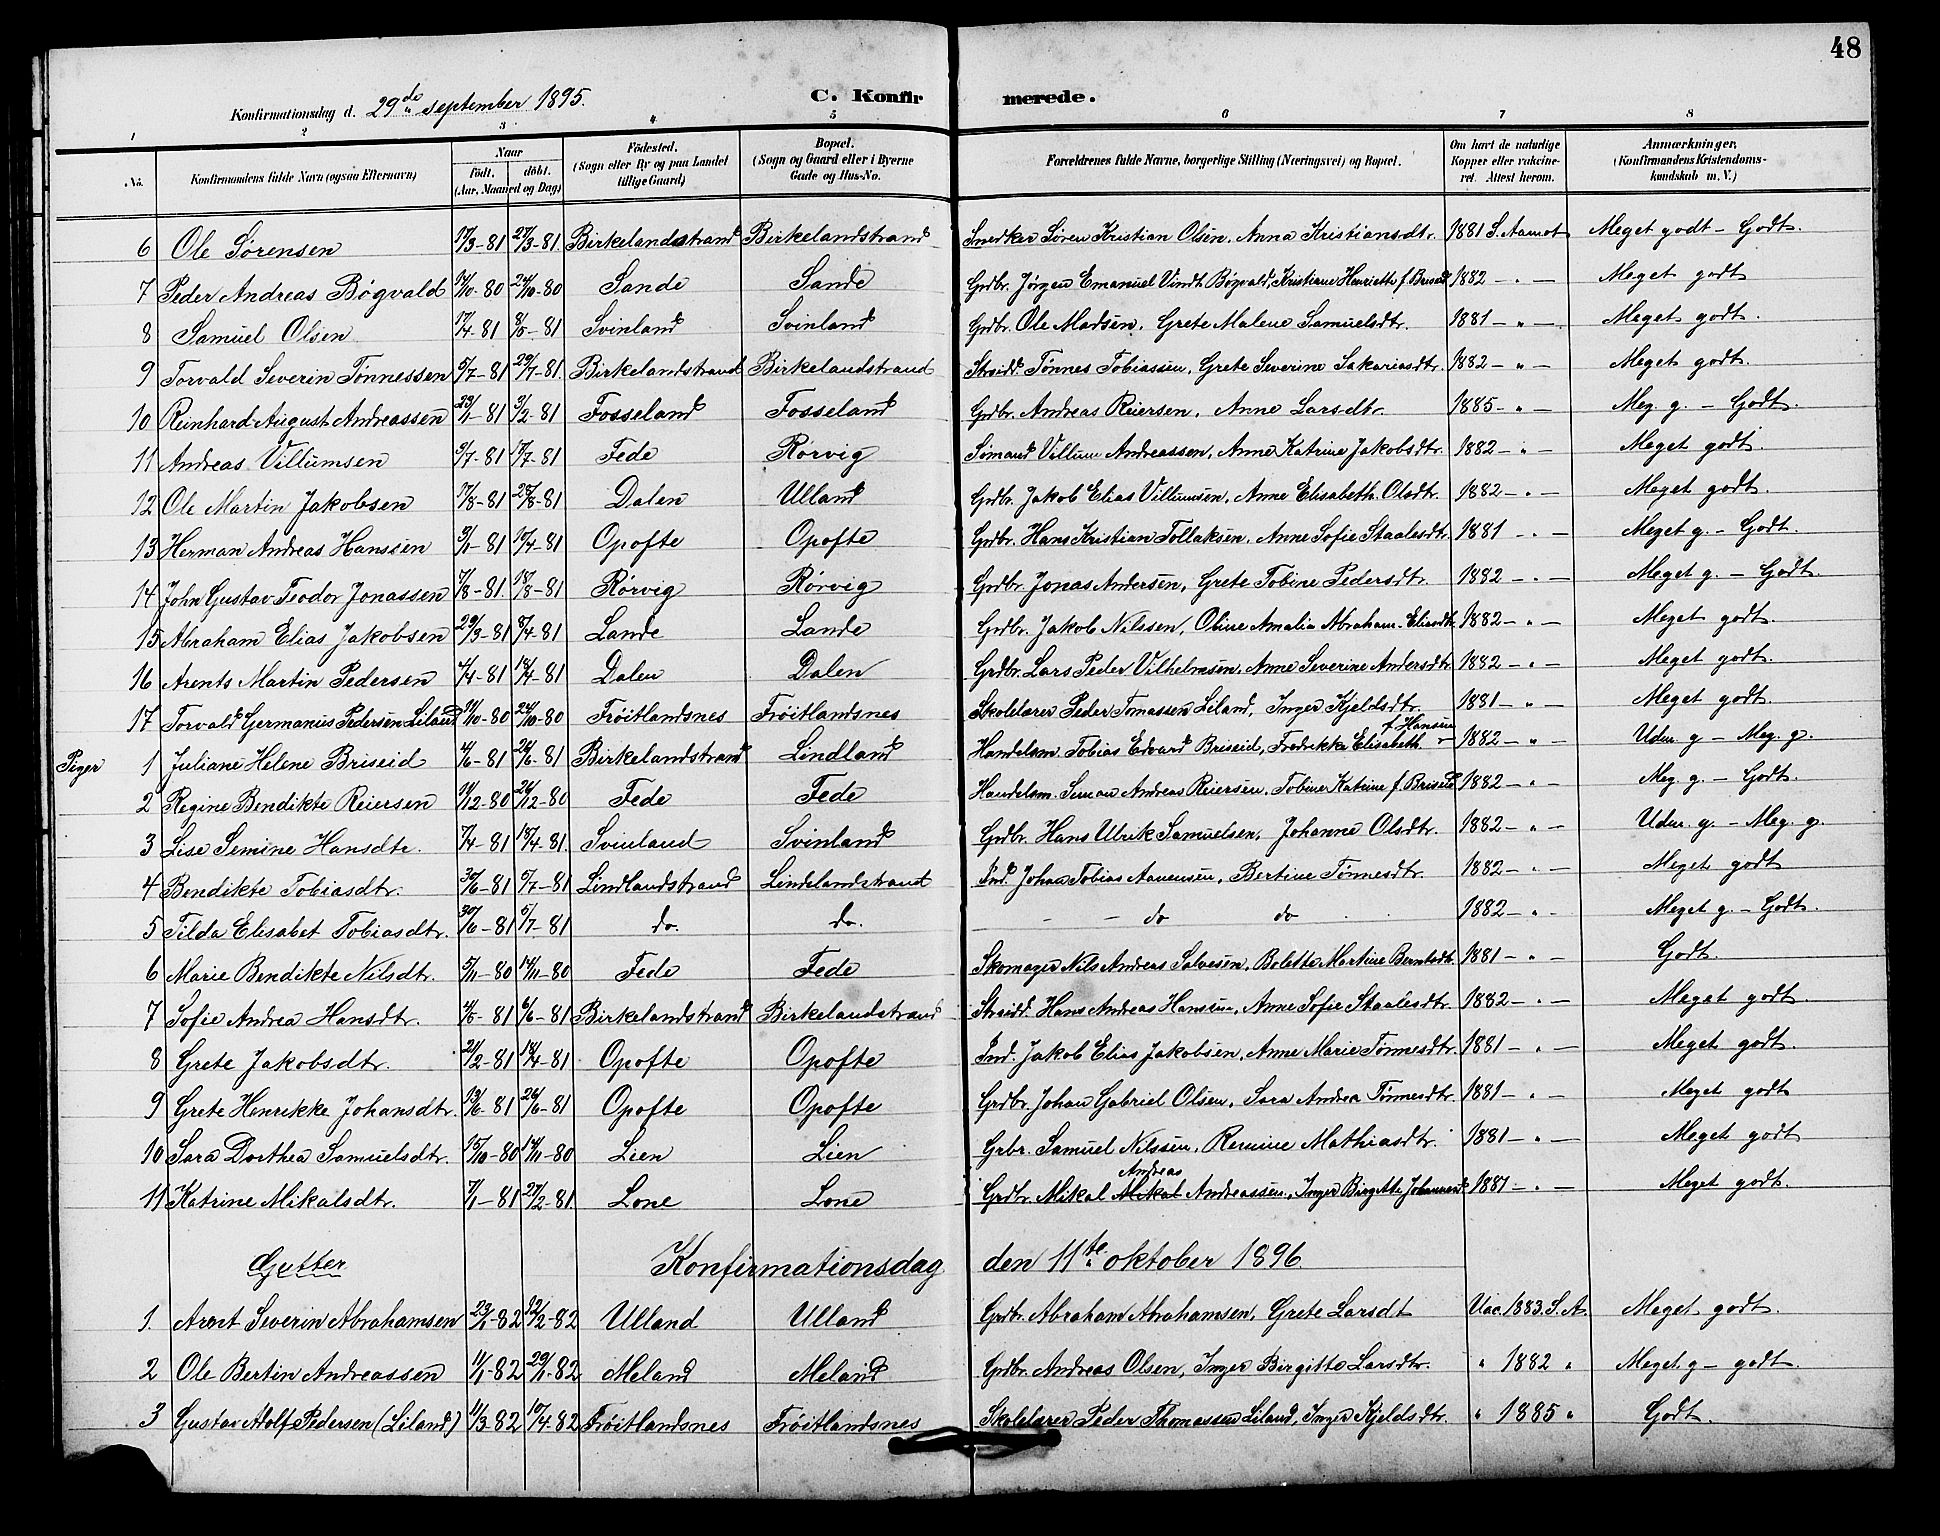 48
Konfirmationsdag d. 29de september 1895. C. Konfirmerede.
1 2 3 4 5 6 7 8
No. Konfirmandens fulde Navn (ogsaa Efternavn) Naar født. døbt. (Aar, Maaned og Dag) Fødested. (Sogn eller By og paa Landet tillige Gaard) Bopæl. (Sogn og Gaard eller i Byerne Gade og Hus-No. Forældrenes fulde Navne, borgerlige Stilling (Næringsvei) og Bopæl. Om havt de naturlige Kopper eller vakcineret. Attest herom. Anmærkninger, (Konfirmandens Kristendomskundskab m. V.)
6 Ole Sørensen 17/3-81 27/3-81. Birkelandsstrand Birkelandstrand Snedker Søren Kristian Olsen, Anna Kristiansdtr. 1881 S. Aamot Meget godt - Godt.
7 Peder Andreas Bøgvald 14/10-80 24/10-80 Sande Sande Grdbr. Jørgen Emanuel Vindt Bøgvald, Kristiane Henriette f. Briseid 1882 - " - Meget godt
8 Samuel Olsen 17/4-81 8/5-81 Svinland Svinland Grdbr. Ole Madsen, Grete Malene Samuelsdtr. 1881 - " - Meget godt.
9 Torvald Severin Tønnessen 5/7-81 29/7-81. Birkelandstrand Birkelandstrand Stridd. Tønnes Tobiassen, Grete Severine Sakariasdtr. 1882 - " - Meget godt.
10 Reinhard August Andreassen 23/1-81 3/2-81 Fosseland Fosseland Grdbr. Andreas Reiersen, Anne Larsdtr. 1885 - " - Meg. g. - Godt.
11 Andreas Villumsen 9/7-81 17/7-81 Fede Rørvig Sømand Villum Andreassen, Anne Katrine Jakobsdtr. 1882 - " - Meget godt.
12 Ole Martin Jakobsen 17/8-81 28/8-81 Dalen Ulland Grdbr. Jakob Elias Villumsen, Anne Elisabeth Olsdtr. 1882 - " - Meget godt.
13 Herman Andreas Hanssen 9/1-81 17/4-81 Opofte Opofte Grdbr. Hans Kristian Tollaksen, Anne Sofie Staalesdtr. 1881 - " - Meget g. - Godt.
14 John Gustav Teodor Jonassen 7/8-81. 18/8-81 Rørvig Rørvig Grdbr. Jonas Andersen, Grete Tobine Pedersdtr. 1882 - " - Meget g. - Godt.
15 Abraham Elias Jakobsen 29/3-81 8/4-81 Lande Lande Grdbr. Jakob Nilssen, Oline Amalia Abraham-Eliasdtr. 1882 - " - Meget godt.
16 Arents Martin Pedersen 4/4-81 18/4-81 Dalen Dalen Grdbr. Lars Peder Vilhelmsen, Anne Severine Andersdtr. 1882 - " - Meget godt.
17 Torvald Germanius Pedersen Liland 11/10-80 24/10-80 Frøitlandsnes Frøitlandsnes Skolelærer Peder Tomassen Liland, Inger Kjeldsdtr. 1881 - " - Meget godt.
Piger 1 Juliane Helene Briseid 4/6-81 26/6-81 Birkelandstrand Lindland Handelsm. Tobias Edvard Briseid, Fredrikke Elisabeth f. Hansen 1882 - " - Udm. g - Meg. g.
2 Regine Bendikte Reiersen 14/12-80 26/12-80 Fede Fede Handelsm. Simon Andreas Reiersen, Tobine Katrine f. Briseid 1882 - " - Meg. g. - Godt.
3 Lise Semine Hansdtr. 7/4-81 18/4-81. Svinland Svinland Grdbr. Hans Ulrik Samuelsen, Johanne Olsdtr. 1882 - " - Udm. g. - Meg. g.
4 Bendikte Tobiasdtr. 30/6-81 5/7-81 Lindlandstrand Lindelandstrant Ind. Johan Tobias Aanensen, Bertine Tønnesdtr. 1882 - " - Meget godt
5 Tilda Elisabet Tobiasdtr. 30/6-81 5/7-81 do. do. - - do do 1882 - " - Meget g. - Godt.
6 Marie Bendikte Nilsdtr. 5/11-80 14/11-80 Fede Fede Skomager Nils Andreas Salvesen, Bolette Martine Berntsdtr. 1881 - " - Godt.
7 Sofie Andrea Hansdtr. 4/6-81 6/6-81 Birkelandstrand Birkelandstrand Stridd. Hans Andreas Hansen, Anne Sofie Staalesdtr. 1882 - " - Meget godt.
8 Grete Jakobsdtr. 21/2-81 18/4-81 Opofte Opofte Ind. Jakob Elias Jakobsen, Anne Marie Tønnesdtr. 1881 - " - Meget godt.
9 Grete Henrikke Johansdtr. 13/6-81 26/6-81 Opofte Opofte Grdbr. Johan Gabriel Olsen, Sara Andrea Tønnesdtr. 1881 - " - Meget godt
10 Sara Dorthea Samuelsdtr. 15/10-80 14/11-80 Lien Lien Grbr. Samuel Nilssen, Remine Mathiasdtr. 1881 - " - Meget godt
11 Katrine Mikalsdtr. 7/1-81 27/2-81. Lone Lone Grdbr. Mikal Mikal Andreas Andreassen, Inger Birgitte Johannesd. 1881 - " - Meget godt.
Gutter Konfirmationsdag den 11te oktober 1896.
1. Arent Severin Abrahamsen 23/1-82 12/2-82 Ulland Ulland Grdbr. Abraham Abrahamsen, Grete Larsdt Vac. 1883. S. A. Meget godt.
2 Ole Bertin Andreassen 11/1-82 29/1-82 Meland Meland Grdbr. Andreas Olsen, Inger Birgitte Larsdtr. " 1882 " Meget. g - godt.
3 Gustav Adolf Pedersen (Liland) 11/3 82 10/4-82 Frøitlandsnes Frøitlandsnes Skolelærer Peder Thomassen Liland, Inger Kjeldsdtr. " 1885 " Godt.